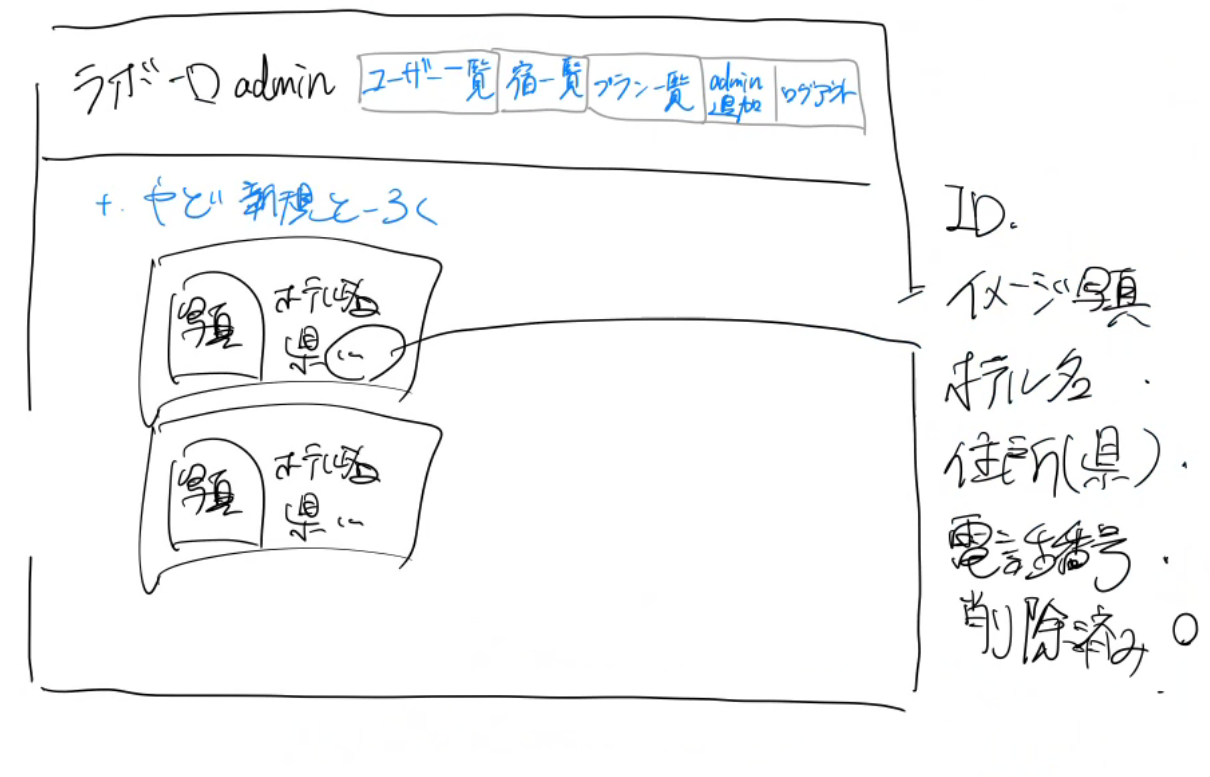 ライボーロ admin ユーザー一覧 宿一覧 プラン一覧 admin追加 ログアウト
+. やど新規とーろく
写真 ホテル名
県...
写真 ホテル名
県...
ID.
イメージ写真
ホテル名.
住所(県).
電話番号.
削除済み ○